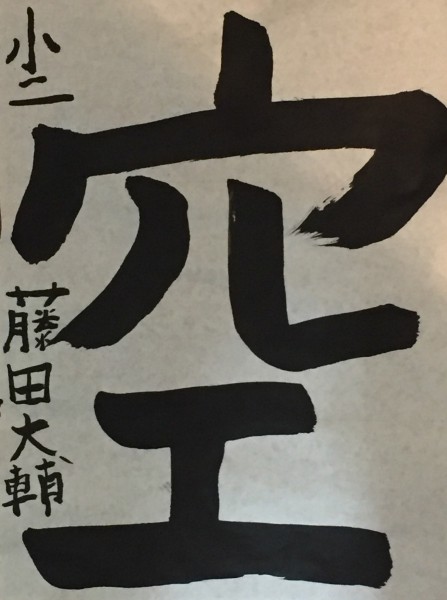 空
小二 藤田大輔